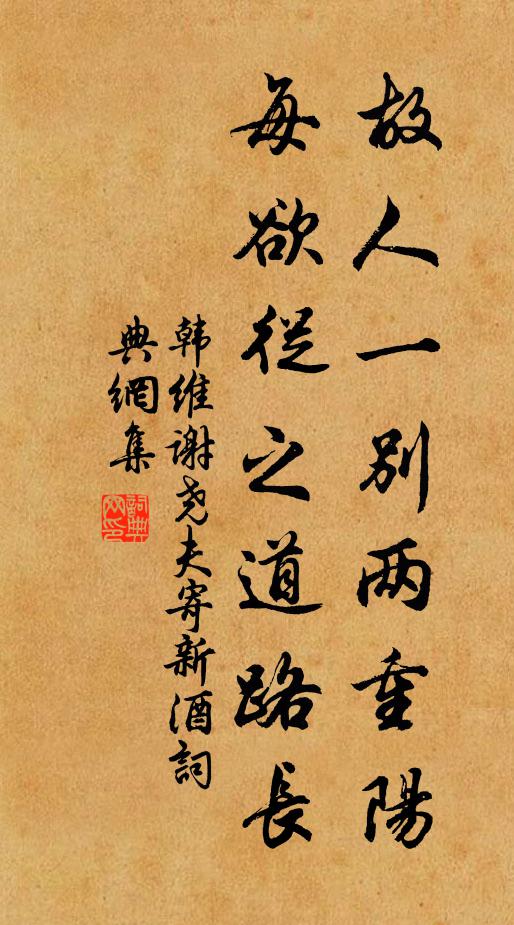 故人一别两重陽
每欲從之道路長
韩维谢尧夫寄新酒詞
典網集
詞典網印